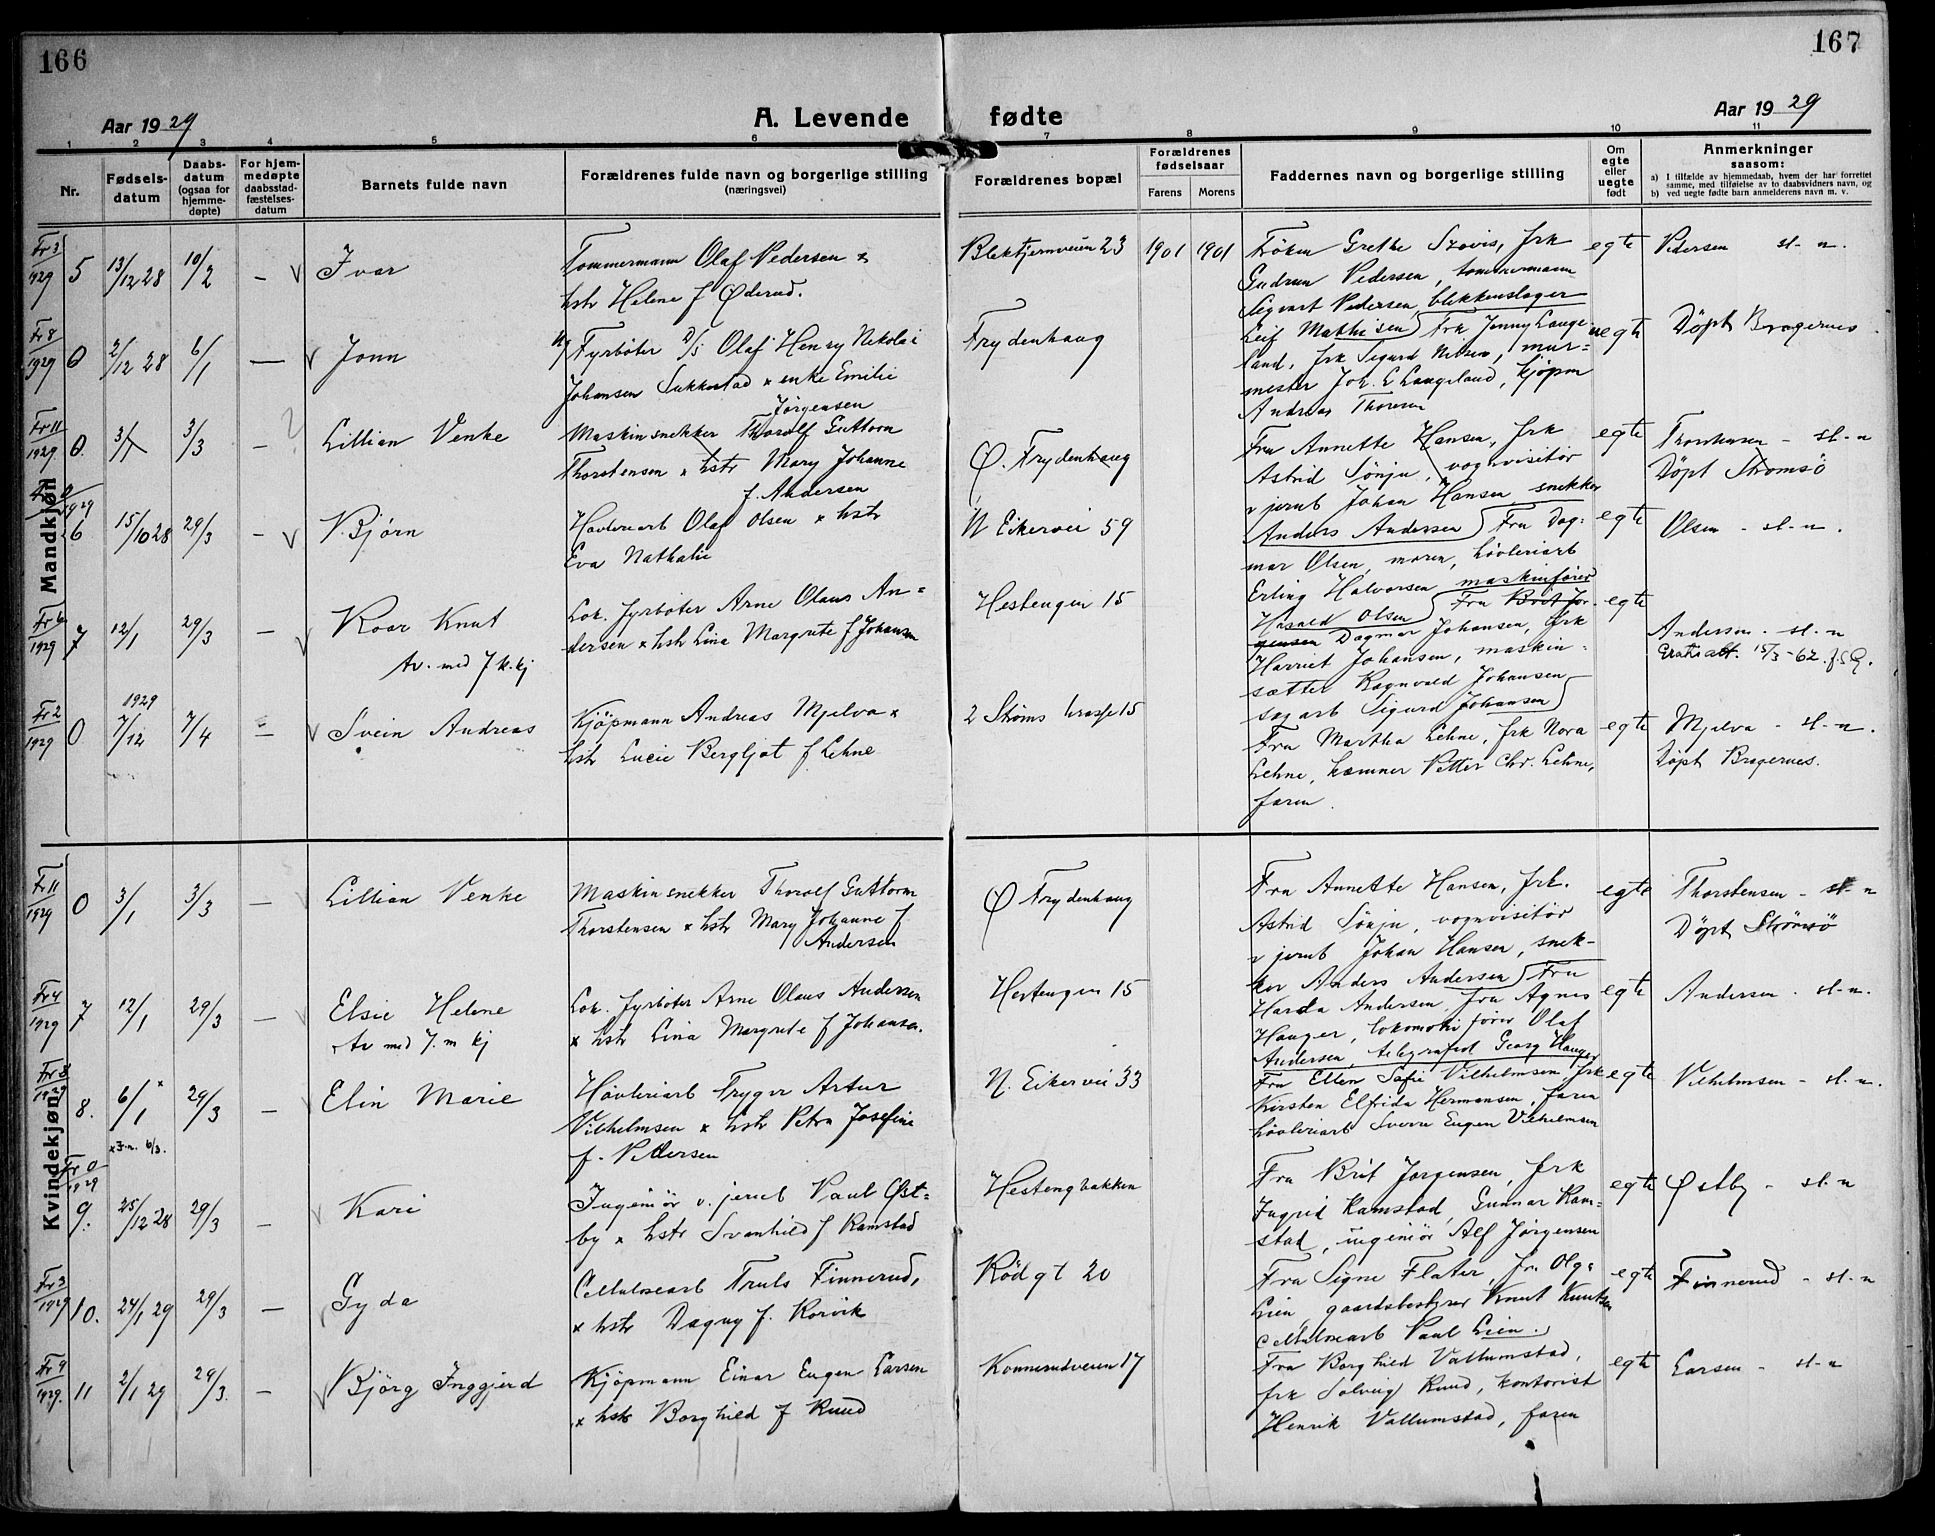 166
167
Aar 1929
A. Levende fødte
Aar 1929
1 2 3 4 5 6 7 8 9 10 11
Nr.
Fødsels-
datum
Daabs-
datum
(ogsaa for
hjemme-
døpte)
For hjem-
medøpte
daabsstad-
fæstelses-
datum
Barnets fulde navn
Forældrenes fulde navn og borgerlige stilling
(næringsvei)
Forældrenes bopæl
Forældrenes
fødselsaar
Farens
Morens
Faddernes navn og borgerlige stilling
Om
egte
eller
uegte
født
Anmerkninger
saasom:
a) I tilfælde av hjemmedaab, hvem der har forrettet
samme, med tilføielse av to daabsvidners navn, og
b) ved uegte fødte barn anmelderens navn m. v.
Mandkjøn
Fr 3
1929
5
13/12 28
10/2
—
Ivar
Tommermann Olaf Pedersen x
hstr Helene f Øderud.
Blektjernveien 23
1901
1901
Frøken Grethe frk
Gudrun Pedersen, tommermann
Sigvart Pedersen, blikkenslager
Leif Mathisen
egte
Pedersen st. n.
Fr 8
1929
0
2/12 28
6/1
—
Jonn
Fyrbøter Olaf Henry Nikolai
Johansen Sukkestad x enke Emilie
Jörgensen
Frydenhaug
Frk Jenny Lange
land, frk Sigurd Nilsen, mur=
mester Joh. E Langeland, kjöpm
Andreas Thoresen
uegte
Döpt Bragernes
Fr 11
1929
0.
3/1
3/3
—
Lillian Venke
Maskinsnekker Thorolf Guttorm
Thorstensen x hstr Mary Johanne
f. Andersen
Ø. Frydenhaug
Fru Annette Hansen, frk
Astrid Sönju, vognvisitör
v jernb Johan Hansen, snekker
Anders Andersen
egte
Thorstensen — st. n
Döpt Strömsö
Fr 0
1929
6
15/10 28
29/3
—
Bjørn
Hövleriarb Olaf Olsen x hstr
Eva Nathalie
N Eikervei 59
Fru Dag=
mar Olsen, moren, hövleriarb
Erling Halvorsen, maskinförer
Harald Olsen
egte
Olsen — st. n.
Fr 6
1929
7
12/1
29/3
—
Roar Knut
Tv. med 7 k. kj
Lok. fyrböter Arne Olaus An=
dersen x hstr Lina Margrete f Johansen
Hestengen 15
Fru Brit Jor-
gensen Dagmar Johansen, frk
Harriet Johansen, maskin-
sætter Ragnvald Johansen
sagarb Sigurd Johansen
egte
Andersen. st. n
Gratis att. 15/3-62.
Fr 2
1929
0
1929
7/12
7/4
=
Svein Andreas
Kjöpmann Andreas Mjelva x
hstr Lucie Bergljot f Lehne
2 Ströms trasse 15
Fru Martha Lehne, frk Nora
Lehne, kæmner Petter Chr. Lehne,
faren.
egte
Mjelva — st. n.
Döpt Bragernes.
Kvindekjøn
Fr 11
1929
0
3/1
3/3
—
Lillian Venke
Maskinsnekker Thorolf Guttorm
Thorstensen x hstr Mary Johanne f
Andersen
Ø Frydenhaug
Fru Annette Hansen, frk.
Astrid Sönju, vognvisitör
v jernb Johan Hansen, snek-
ker Anders Andersen
egte
Thorstensen — st. n
Döpt Strömsö
Fr 4
1929
7
12/1
29/3
—
Elsie Helene
Tv med 7. m kj
Lok. fyrböter Arne Olaus Andersen
x hstr Lina Margrete f Johansen.
Hestengen 15
Fru
Harda Andersen, fru Agnes
Hauger, lokomotivförer Olaf
Andersen, telegrafist Georg Hauger
egte
Andersen. st. n.
Fr 8
1929
8.
6/1 x
x F. n. 6/3.
29/3
—
Elin Marie
Hövleriarb Trygve Artur
Vilhelmsen x hstr Petra Josefine
f. Pettersen
N. Eikervei 33
Fru Ellen Sofie Vilhelmsen, frk
Kirsten Elfrida Hermansen, faren
hövleriarb Sverre Eugen Vilhelmsen
egte
Vilhelmsen — st. n.
Fr 0
1929
9.
25/12 28
29/3
—
Kari
Ingeniör v. jernb Paul Øst=
by x hstr Svanhild f Ramstad
Hestengbakken
Fru Brit Jorgensen, frk
Ingrid Ramstad, Gunnar Ram=
stad, ingeniör Alf Jörgensen
egte
Østby — st. n
Fr 3
1929
10.
24/1 29
29/3
—
Gyda
Cellulosearb Truls Finnerud,
x hstr Dagny f. Rorvik
Rödgt 20
Fru Signe Flater, fru Olga
Lien, gaardsbestyrer Knut Knutsen
Cellulosearb Paul Lien.
egte
Finnerud — st. n
Fr 9
1929.
11
2/1 29
29/3.
—
Björg Inggjerd
Kjöpmann Einar Eugen Larsen
x hstr Borghild f Ruud
Konnerudveien 17
Fru Borghild Vallumstad,
frk Solveig Ruud, kontorist
Henrik Vallumstad, faren
egte
Larsen — st. n